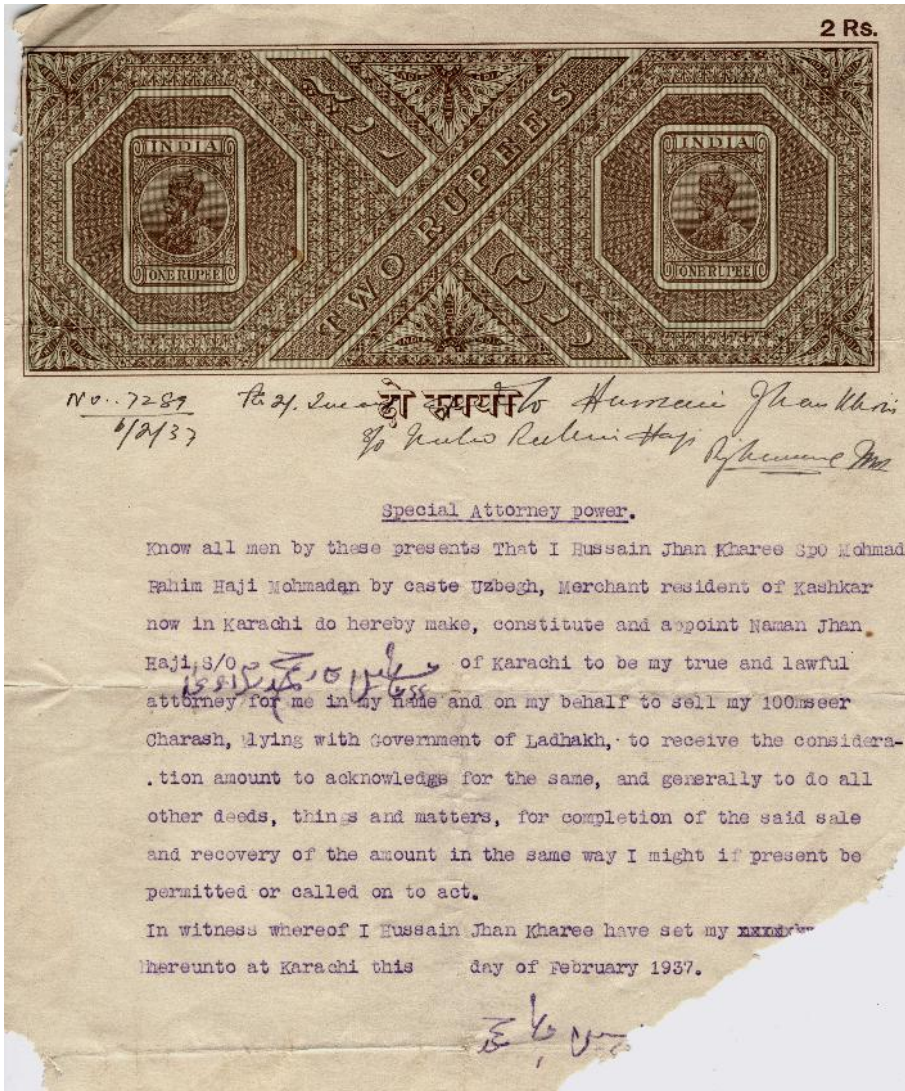 2 Rs.
INDIA
INDIA
TWO RUPEES
ONE RUPEE
ONE RUPEE
No.. 7289 दो रुपया to Hussain Jhan Kharis
6/2/37 S/o Rahim Haji
Special Attorney power.
Know all men by these presents That I Hussain Jhan Kharee SpO Mohmad
Rahim Haji Mohmadan by caste Uzbegh, Merchant resident of Kashkar
now in Karachi do hereby make, constitute and appoint Naman Jhan
Haji S/O of Karachi to be my true and lawful
attorney for me in my name and on my behalf to sell my 100mseer
Charash, lying with Government of Ladhakh, to receive the considera-
.tion amount to acknowledge for the same, and generally to do all
other deeds, things and matters, for completion of the said sale
and recovery of the amount in the same way I might if present be
permitted or called on to act.
In witness whereof I Hussain Jhan Kharee have set my
hereunto at Karachi this day of February 1937.